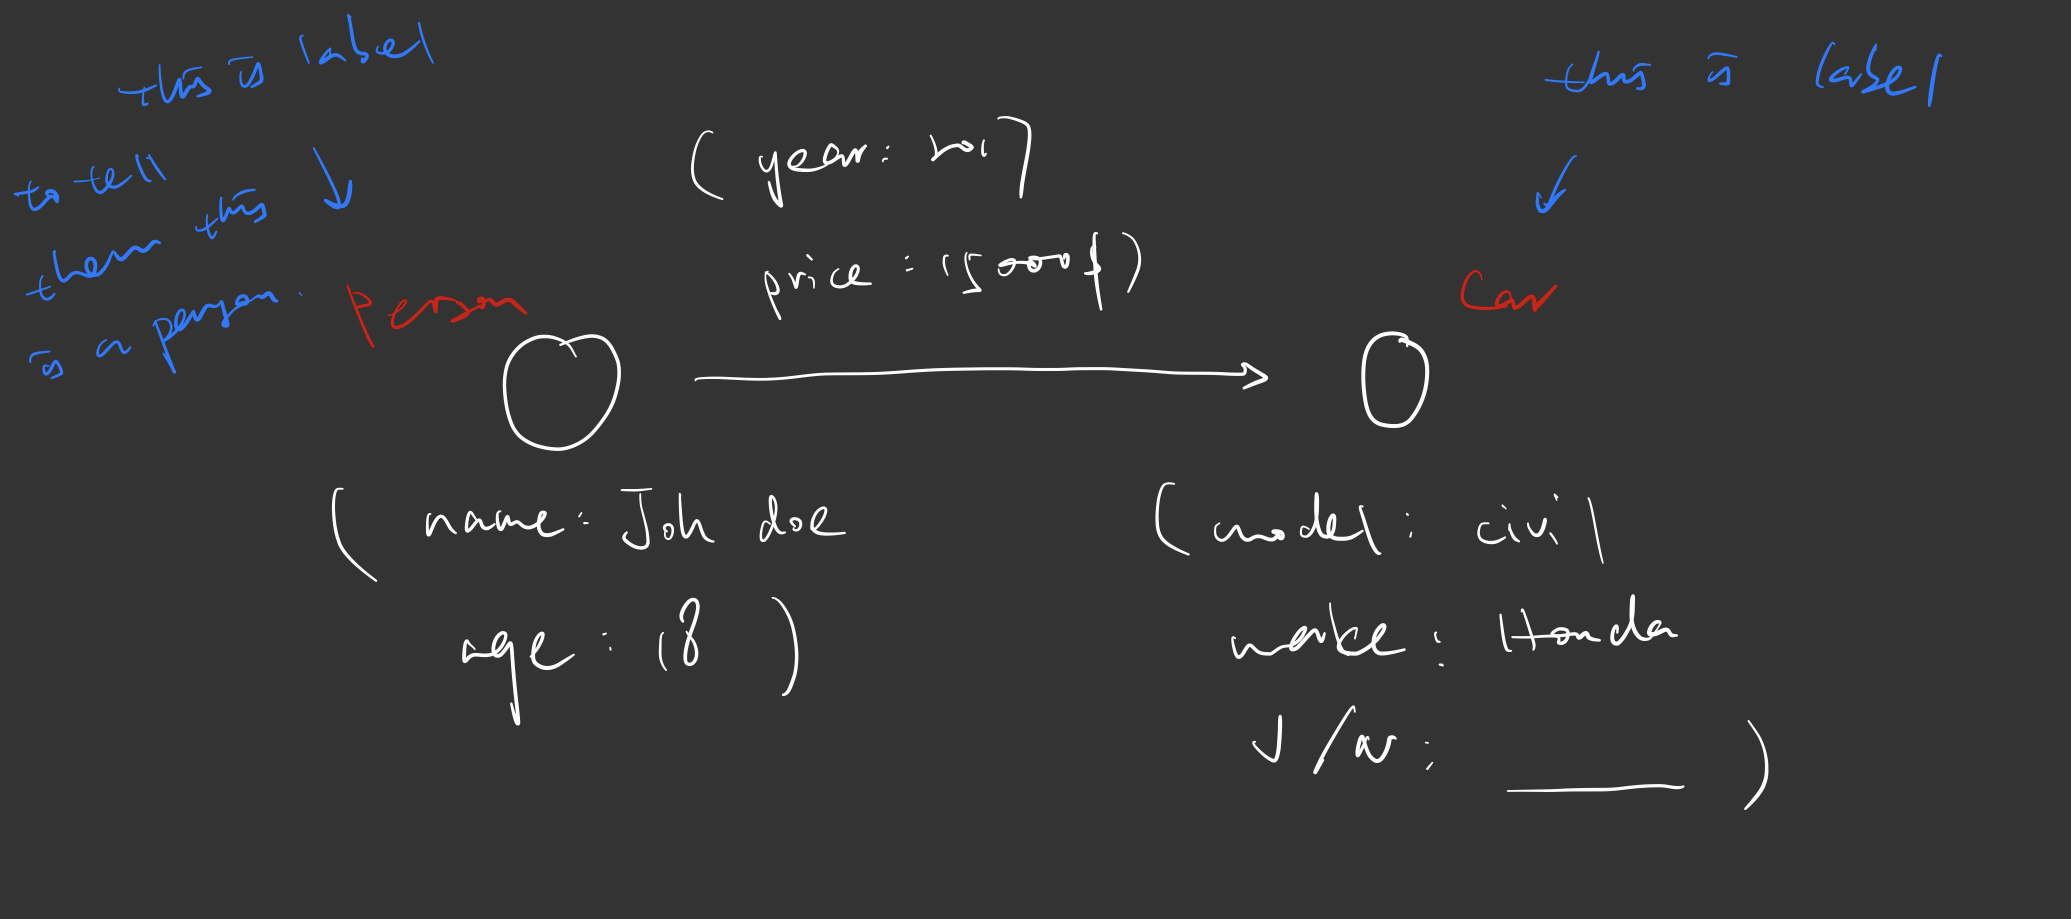 this is label
to tell
them this
is a person.
Person
(year:
price: 15000$)
this is label
Car
(name: Joh doe
age: 18)
(model: civil
make: Honda
)